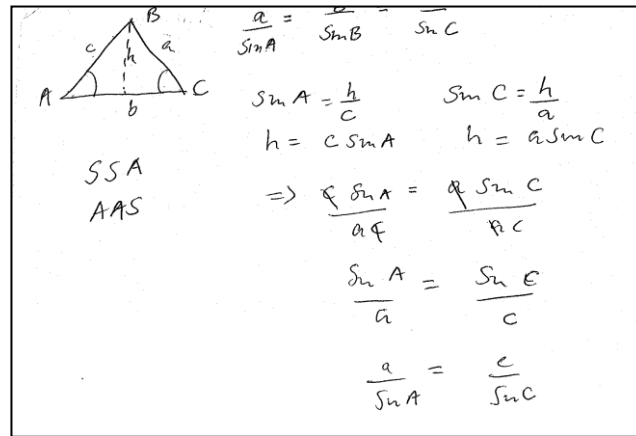 B
c h a
A b C
a/SinA = /SinB = /SinC
Sin A = h/c Sin C = h/a
h = c Sin A h = a Sin C
SSA
AAS
=> c Sin A / ac = a Sin C / ac
Sin A / a = Sin C / c
a / Sin A = c / Sin C